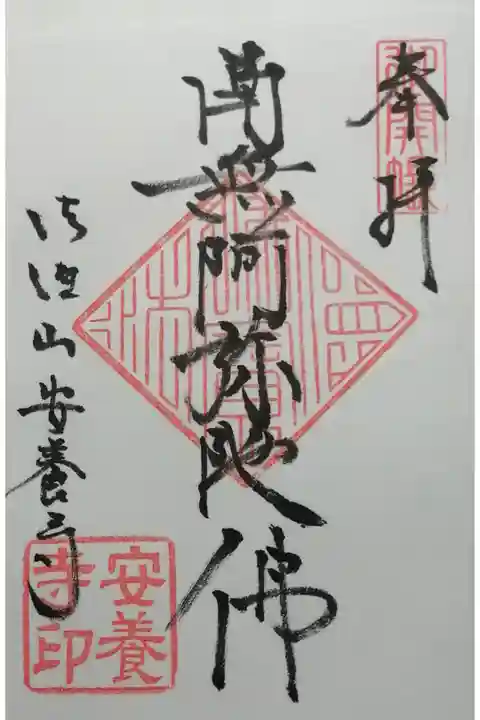 奉拝
南無阿弥陀佛
法沍山安養寺
安養寺印